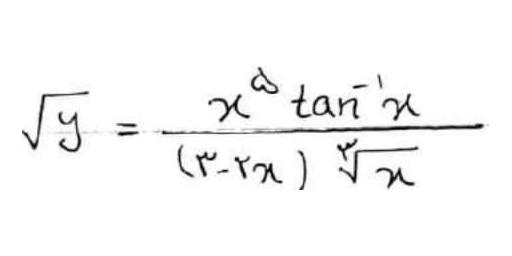 √y = (x^۵ tan⁻¹x) / ((۳-۲x) ∛x)